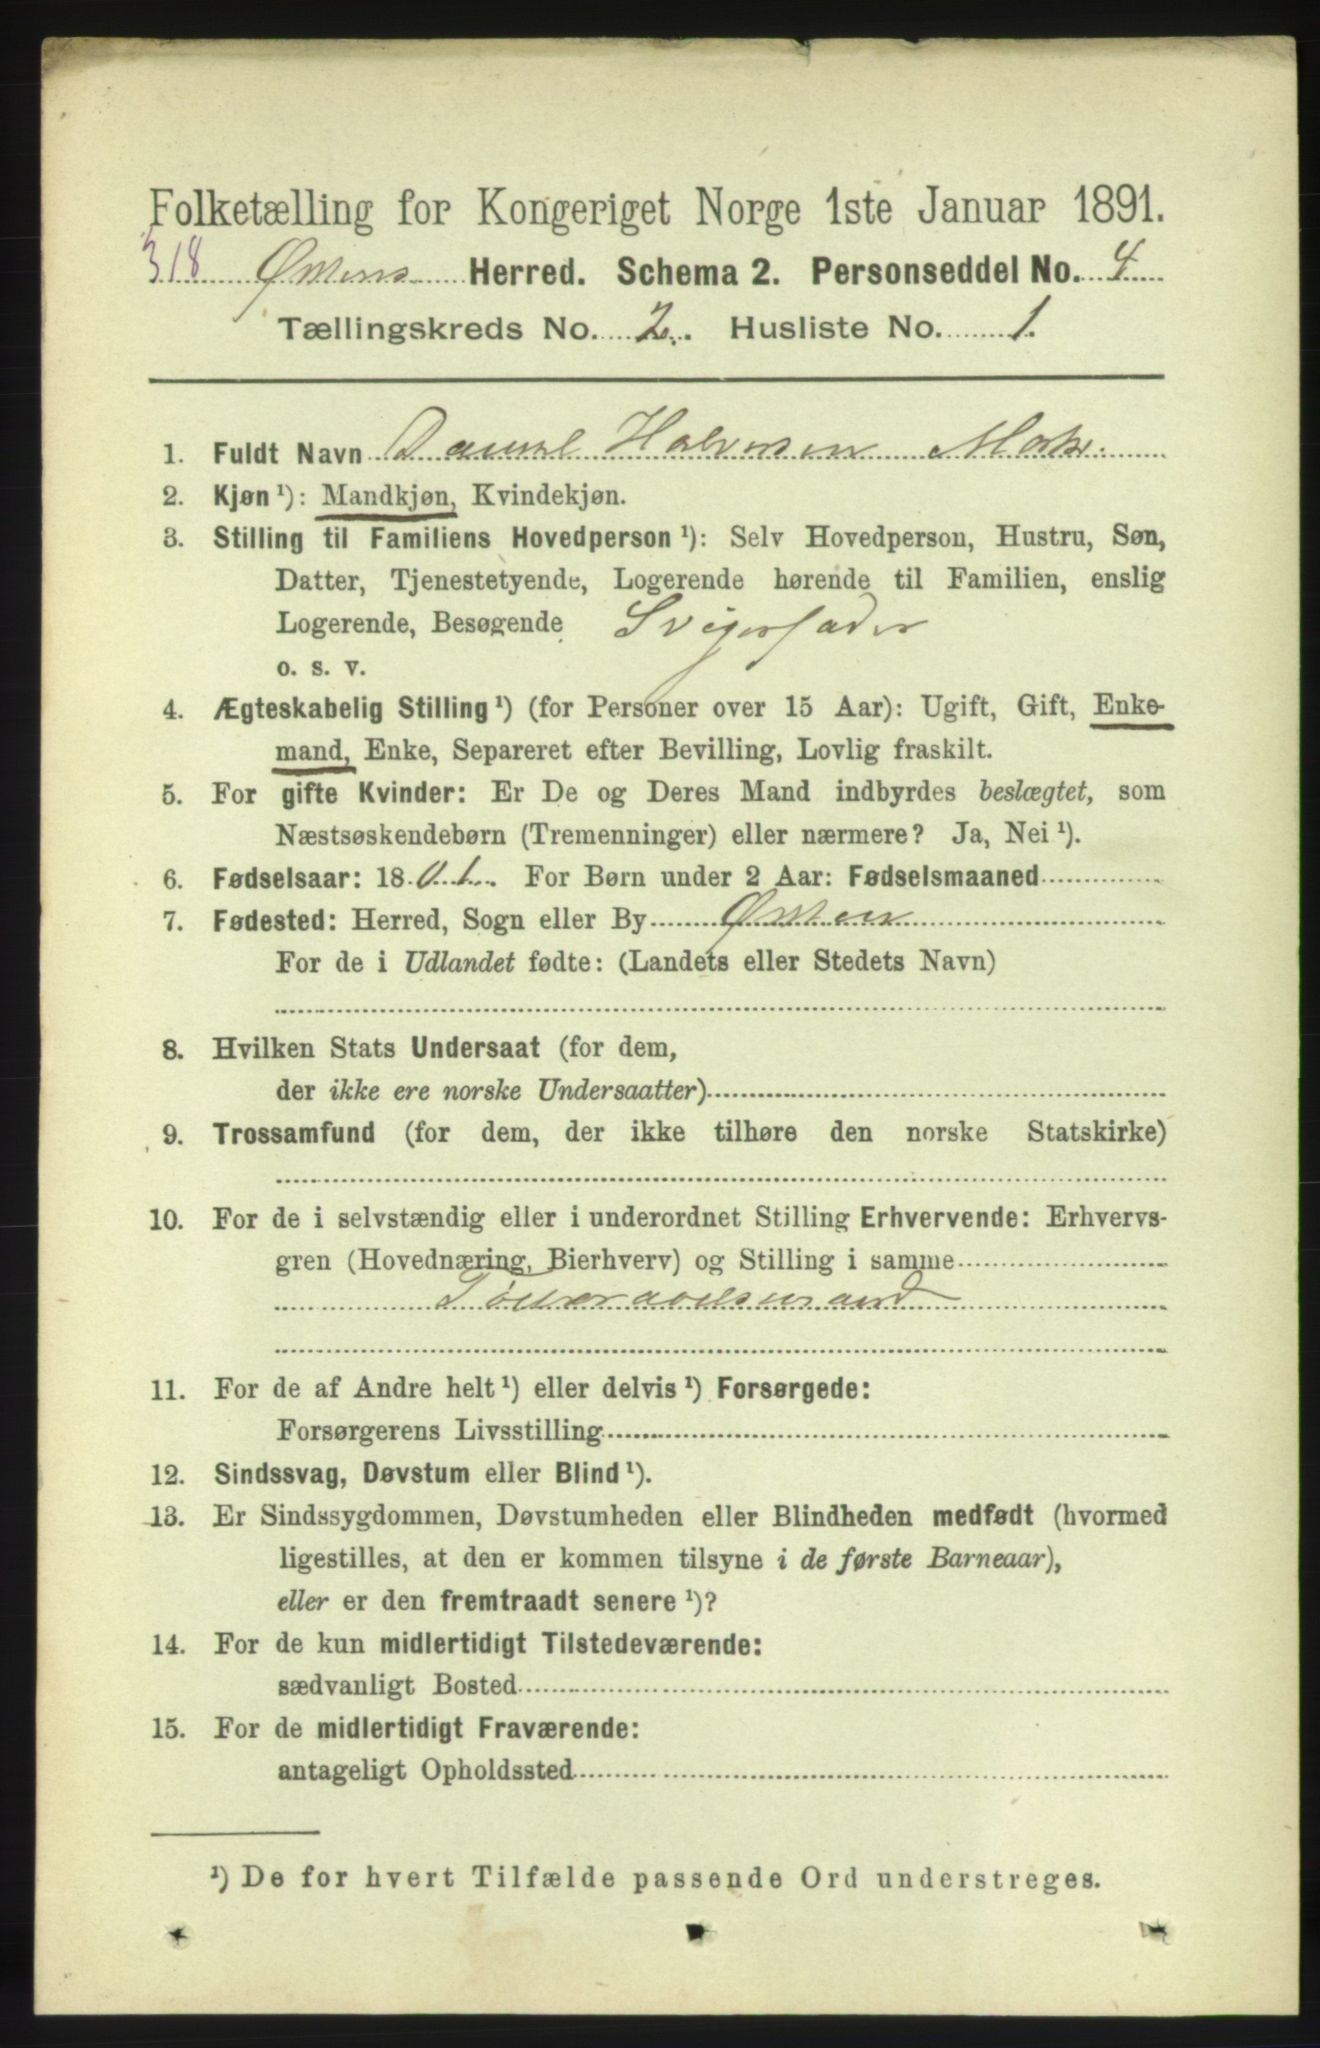 Folketælling for Kongeriget Norge 1ste Januar 1891.
318 Øxnes Herred. Schema 2. Personseddel No. 4
Tællingskreds No. 2. Husliste No. 1.
1. Fuldt Navn Daniel Halvorsen
2. Kjøn ¹): Mandkjøn, Kvindekjøn.
3. Stilling til Familiens Hovedperson ¹): Selv Hovedperson, Hustru, Søn,
Datter, Tjenestetyende, Logerende hørende til Familien, enslig
Logerende, Besøgende Svigerfader
o. s. v.
4. Ægteskabelig Stilling ¹) (for Personer over 15 Aar): Ugift, Gift, Enke-
mand, Enke, Separeret efter Bevilling, Lovlig fraskilt.
5. For gifte Kvinder: Er De og Deres Mand indbyrdes beslægtet, som
Næstsøskendebørn (Tremenninger) eller nærmere? Ja, Nei ¹).
6. Fødselsaar: 1801. For Børn under 2 Aar: Fødselsmaaned
7. Fødested: Herred, Sogn eller By Øxnes
For de i Udlandet fødte: (Landets eller Stedets Navn)
8. Hvilken Stats Undersaat (for dem,
der ikke ere norske Undersaatter)
9. Trossamfund (for dem, der ikke tilhøre den norske Statskirke)
10. For de i selvstændig eller i underordnet Stilling Erhvervende: Erhvervs-
gren (Hovednæring, Bierhverv) og Stilling i samme
Föderaadsmand
11. For de af Andre helt ¹) eller delvis ¹) Forsørgede:
Forsørgerens Livsstilling
12. Sindssvag, Døvstum eller Blind ¹).
13. Er Sindssygdommen, Døvstumheden eller Blindheden medfødt (hvormed
ligestilles, at den er kommen tilsyne i de første Barneaar),
eller er den fremtraadt senere ¹)?
14. For de kun midlertidigt Tilstedeværende:
sædvanligt Bosted
15. For de midlertidigt Fraværende:
antageligt Opholdssted
¹) De for hvert Tilfælde passende Ord understreges.